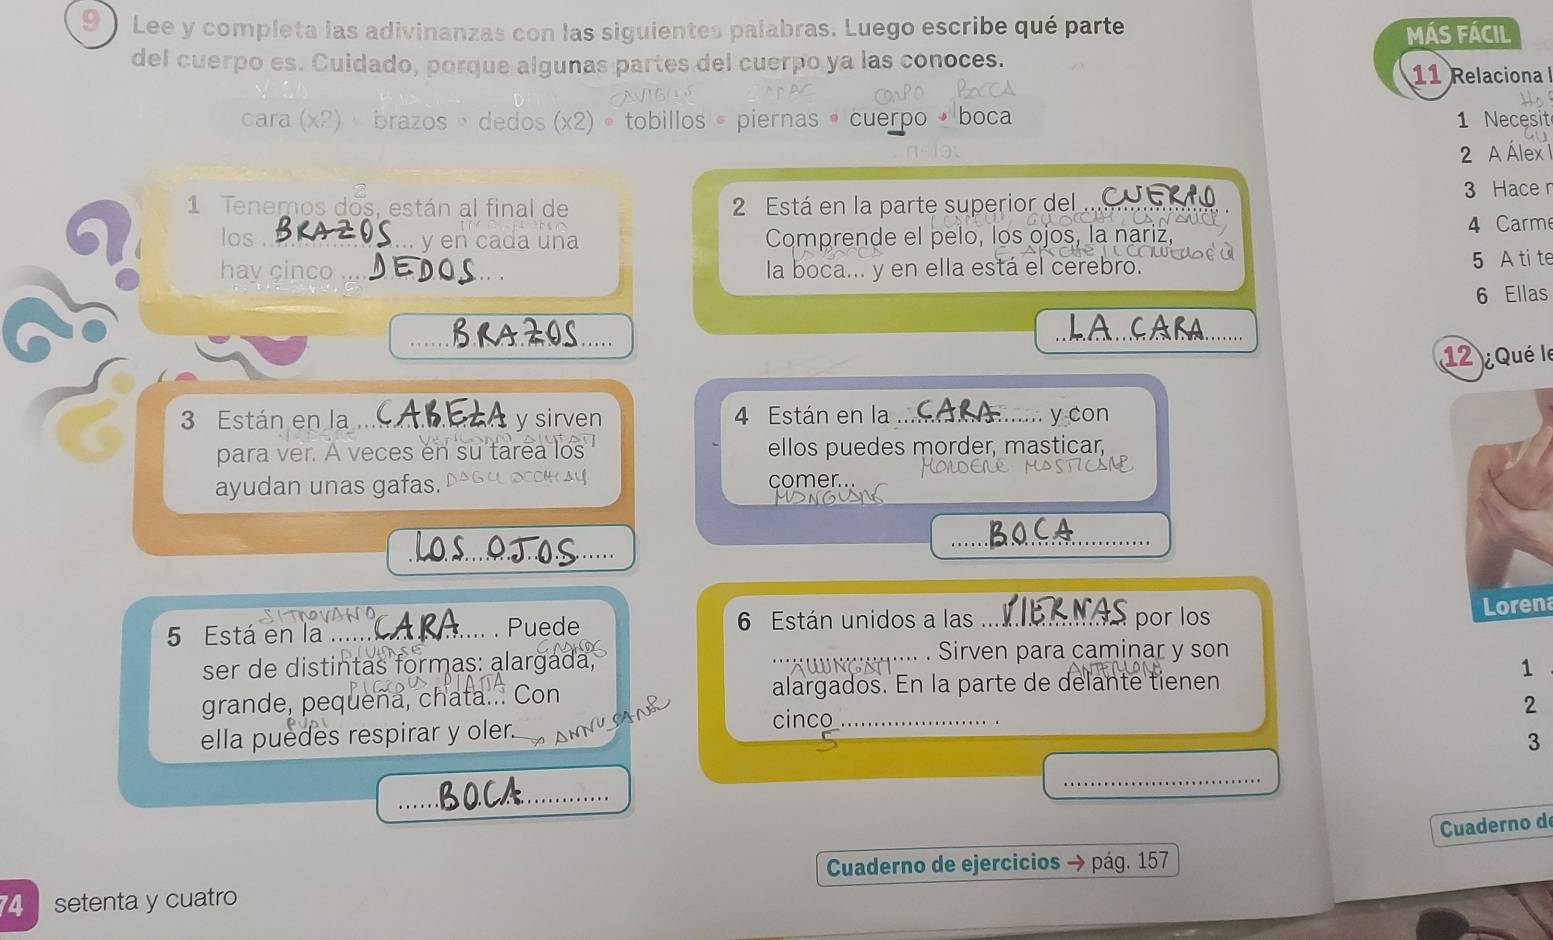 9 Lee y completa las adivinanzas con las siguientes palabras. Luego escribe qué parte
del cuerpo es. Cuidado, porque algunas partes del cuerpo ya las conoces.
CAVIGLIE CORPO BOCCA
cara (x2) • brazos • dedos (x2) • tobillos • piernas • cuerpo • boca
1 Tenemos dos, están al final de
los BRAZOS y en cada una
hay cinco DEDOS.
BRAZOS
2 Está en la parte superior del CUERPO.
Comprende el pelo, los ojos, la nariz,
la boca... y en ella está el cerebro.
LA CARA
3 Están en la CABEZA y sirven
para ver. A veces en su tarea los
ayudan unas gafas. DAGLI OCCHIALI
LOS OJOS
4 Están en la CARA y con
ellos puedes morder, masticar,
MORDERE MASTICARE
comer...
BOCA
5 Está en la CARA. Puede
ser de distintas formas: alargada,
grande, pequeña, chata... Con
ella puedes respirar y oler.
BOCA
6 Están unidos a las PIERNAS por los
........ . Sirven para caminar y son
alargados. En la parte de delante tienen
cinco ........ .
5
Cuaderno de ejercicios → pág. 157
74 setenta y cuatro
MÁS FÁCIL
11 Relaciona l
1 Necesit
2 A Álex l
3 Hace
4 Carme
5 A ti te
6 Ellas
12 ¿Qué le
Lorena
1
2
3
Cuaderno de